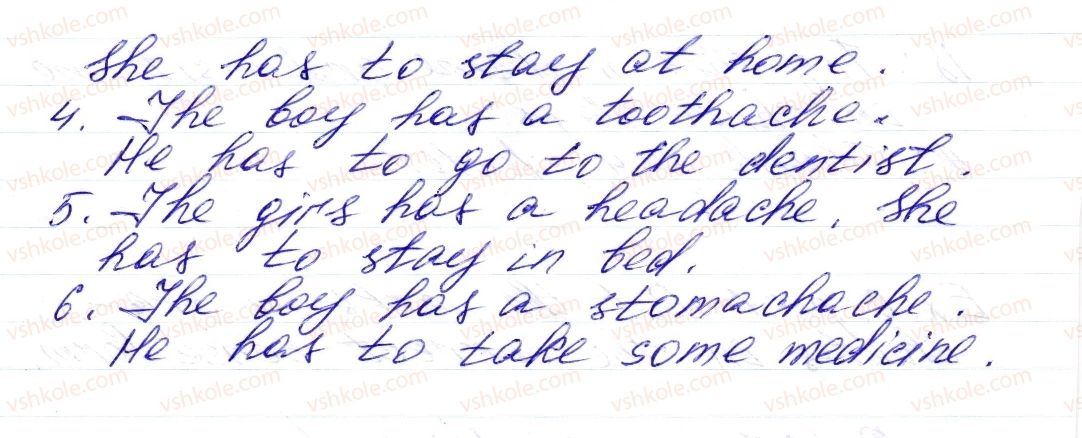 She has to stay at home.
4. The boy has a toothache.
He has to go to the dentist.
5. The girls has a headache. She
has to stay in bed.
6. The boy has a stomachache.
He has to take some medicine.